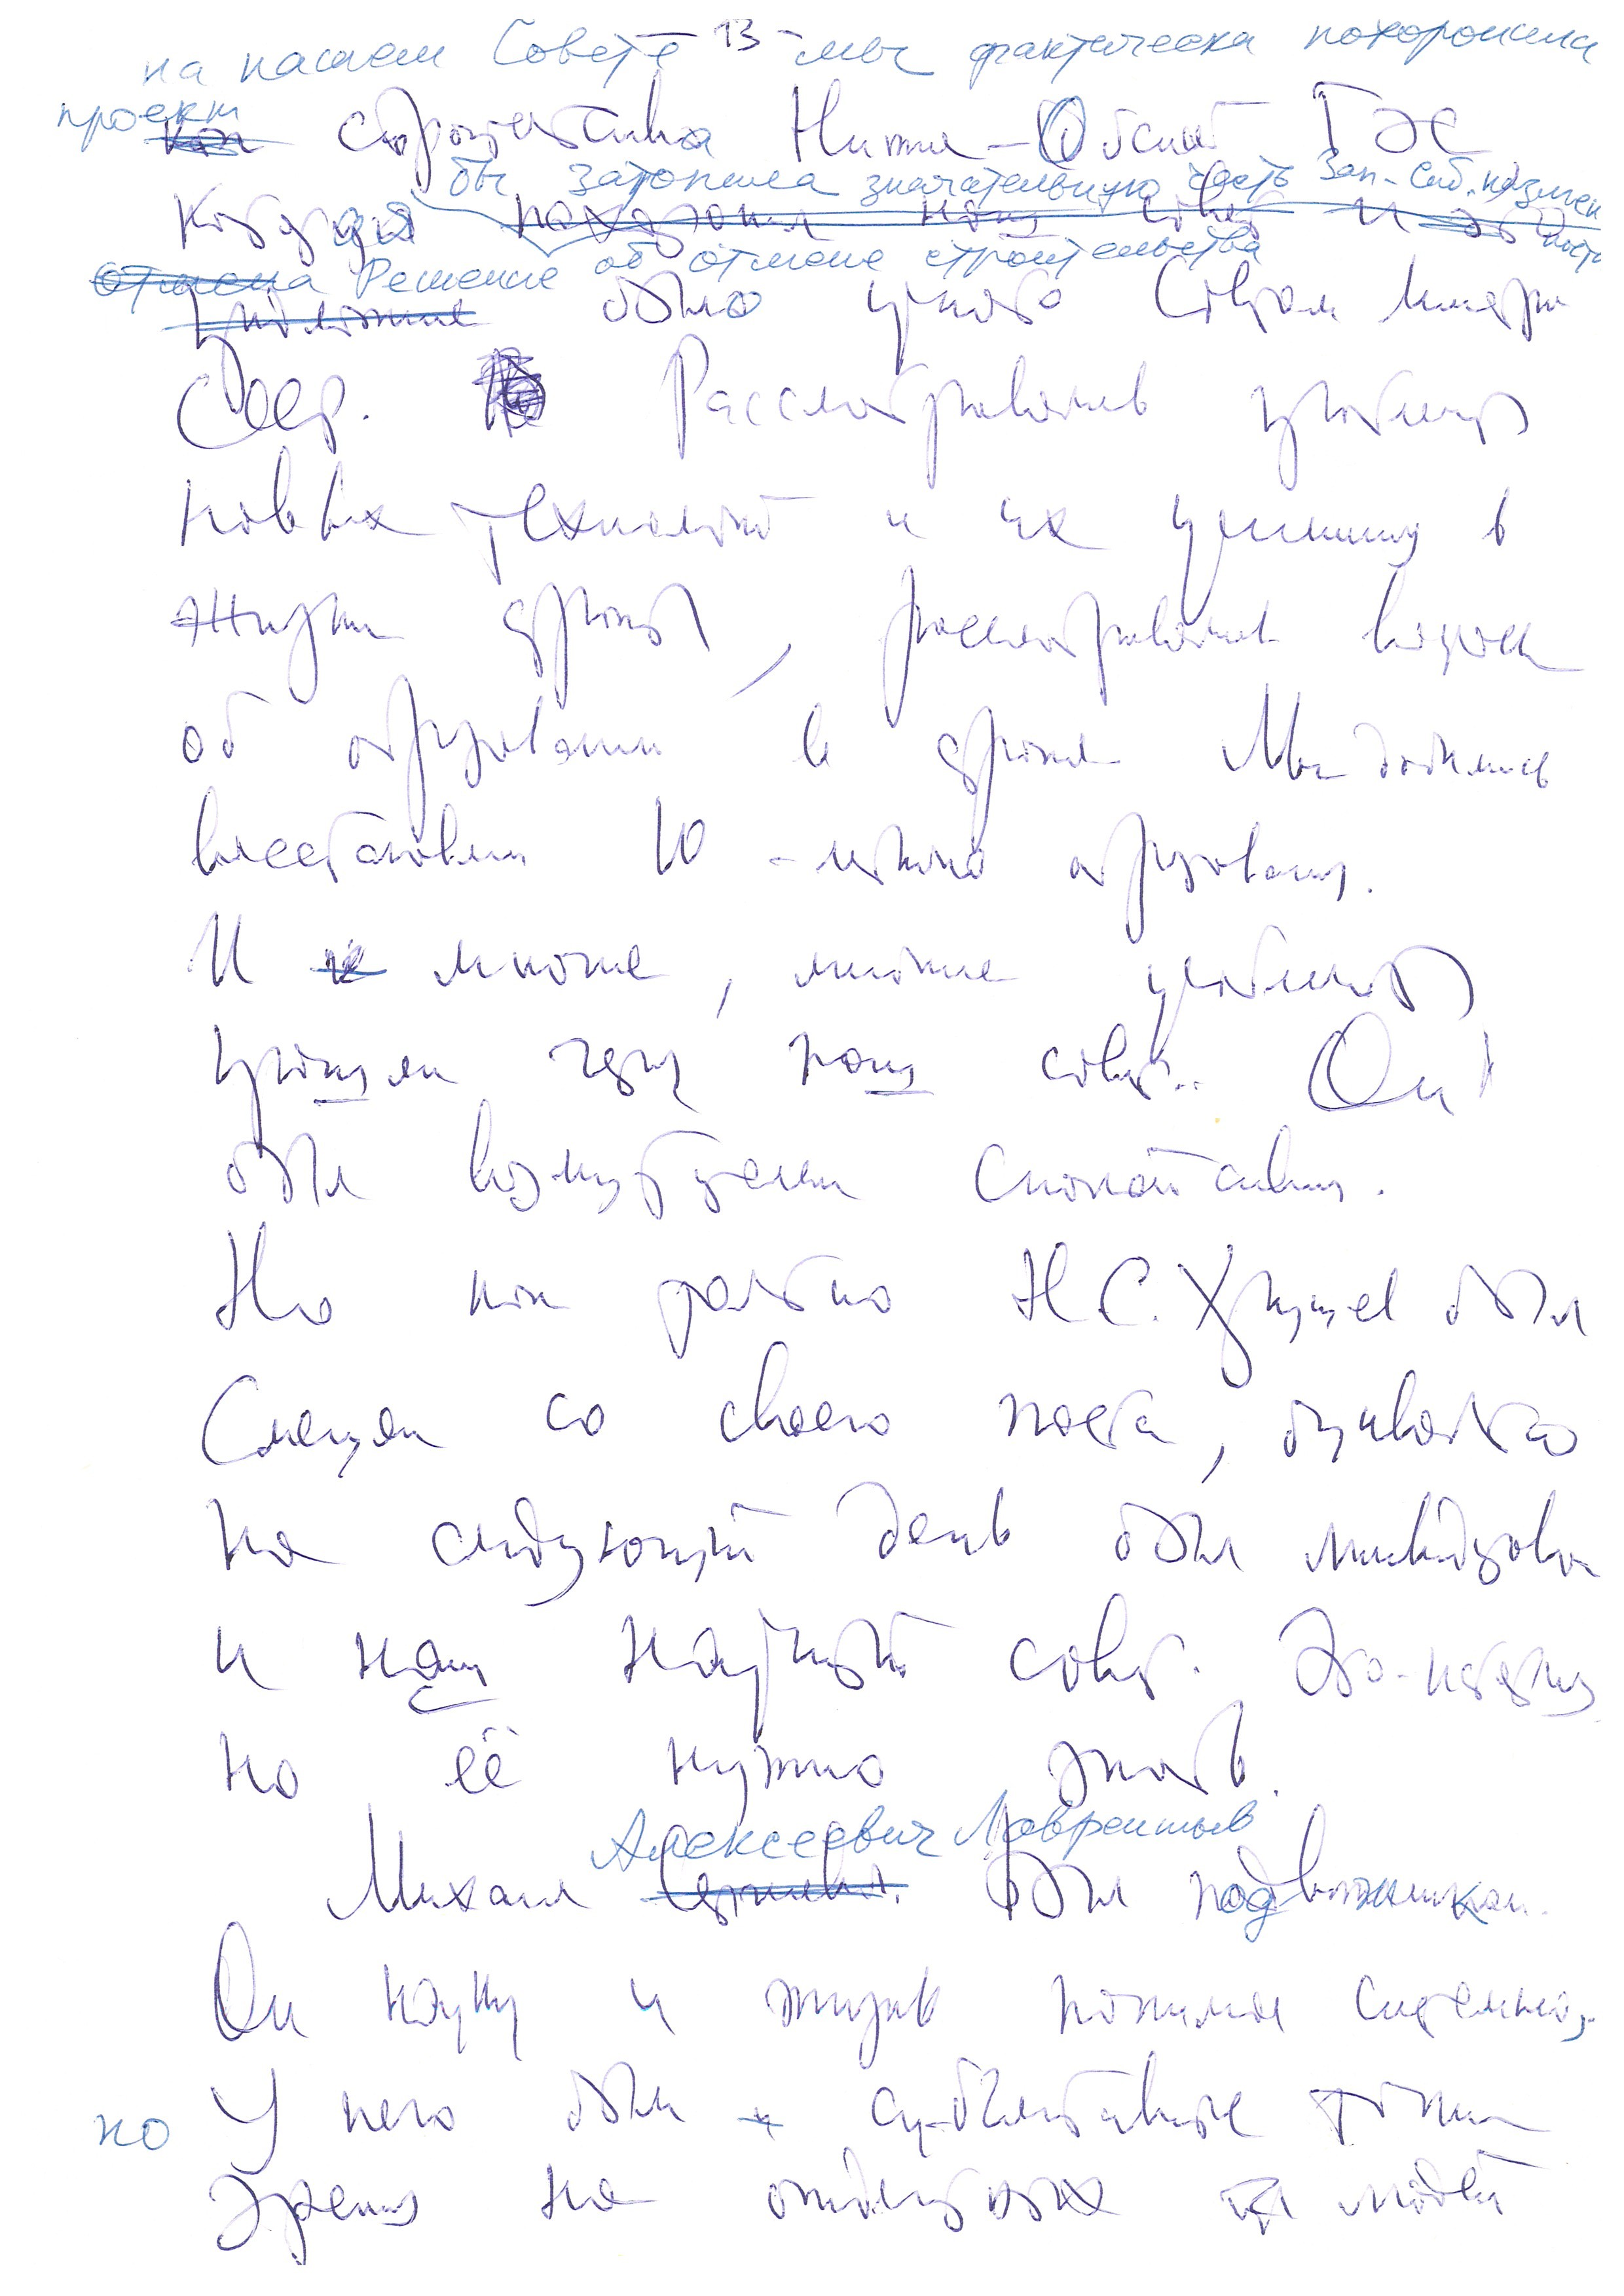 - 13 -
на нашем Совете мы фактически похоронили
проект
строительства Нижне-Обской ГЭС
бы затопила значательную часть Зап.-Сиб. низмен
ности
Которая похоронил наш совет и
отмена Решение об отмене строительства
предложение было принято Советом Министров
СССР. Рассматривались проблемы
новых технологий и их
жизни страны, рассматривался вопрос
об образовании в стране Мы добились
восстановления 10-летнего образования.
И многие, многие проблемы
прошли через наш совет. Они
были возмутителем спокойствия.
Но как только Н.С. Хрущев был
Смещен со своего поста, буквально
на следующий день был ликвидирован
и наш Научный совет. Это-история
но её нужно знать.
Алексеевич Лаврентьев
Михаил Сергеевич. был подвижником.
Он науку и жизнь понимал системно,
но У него были субъективные точки
зрения на отдельных людей